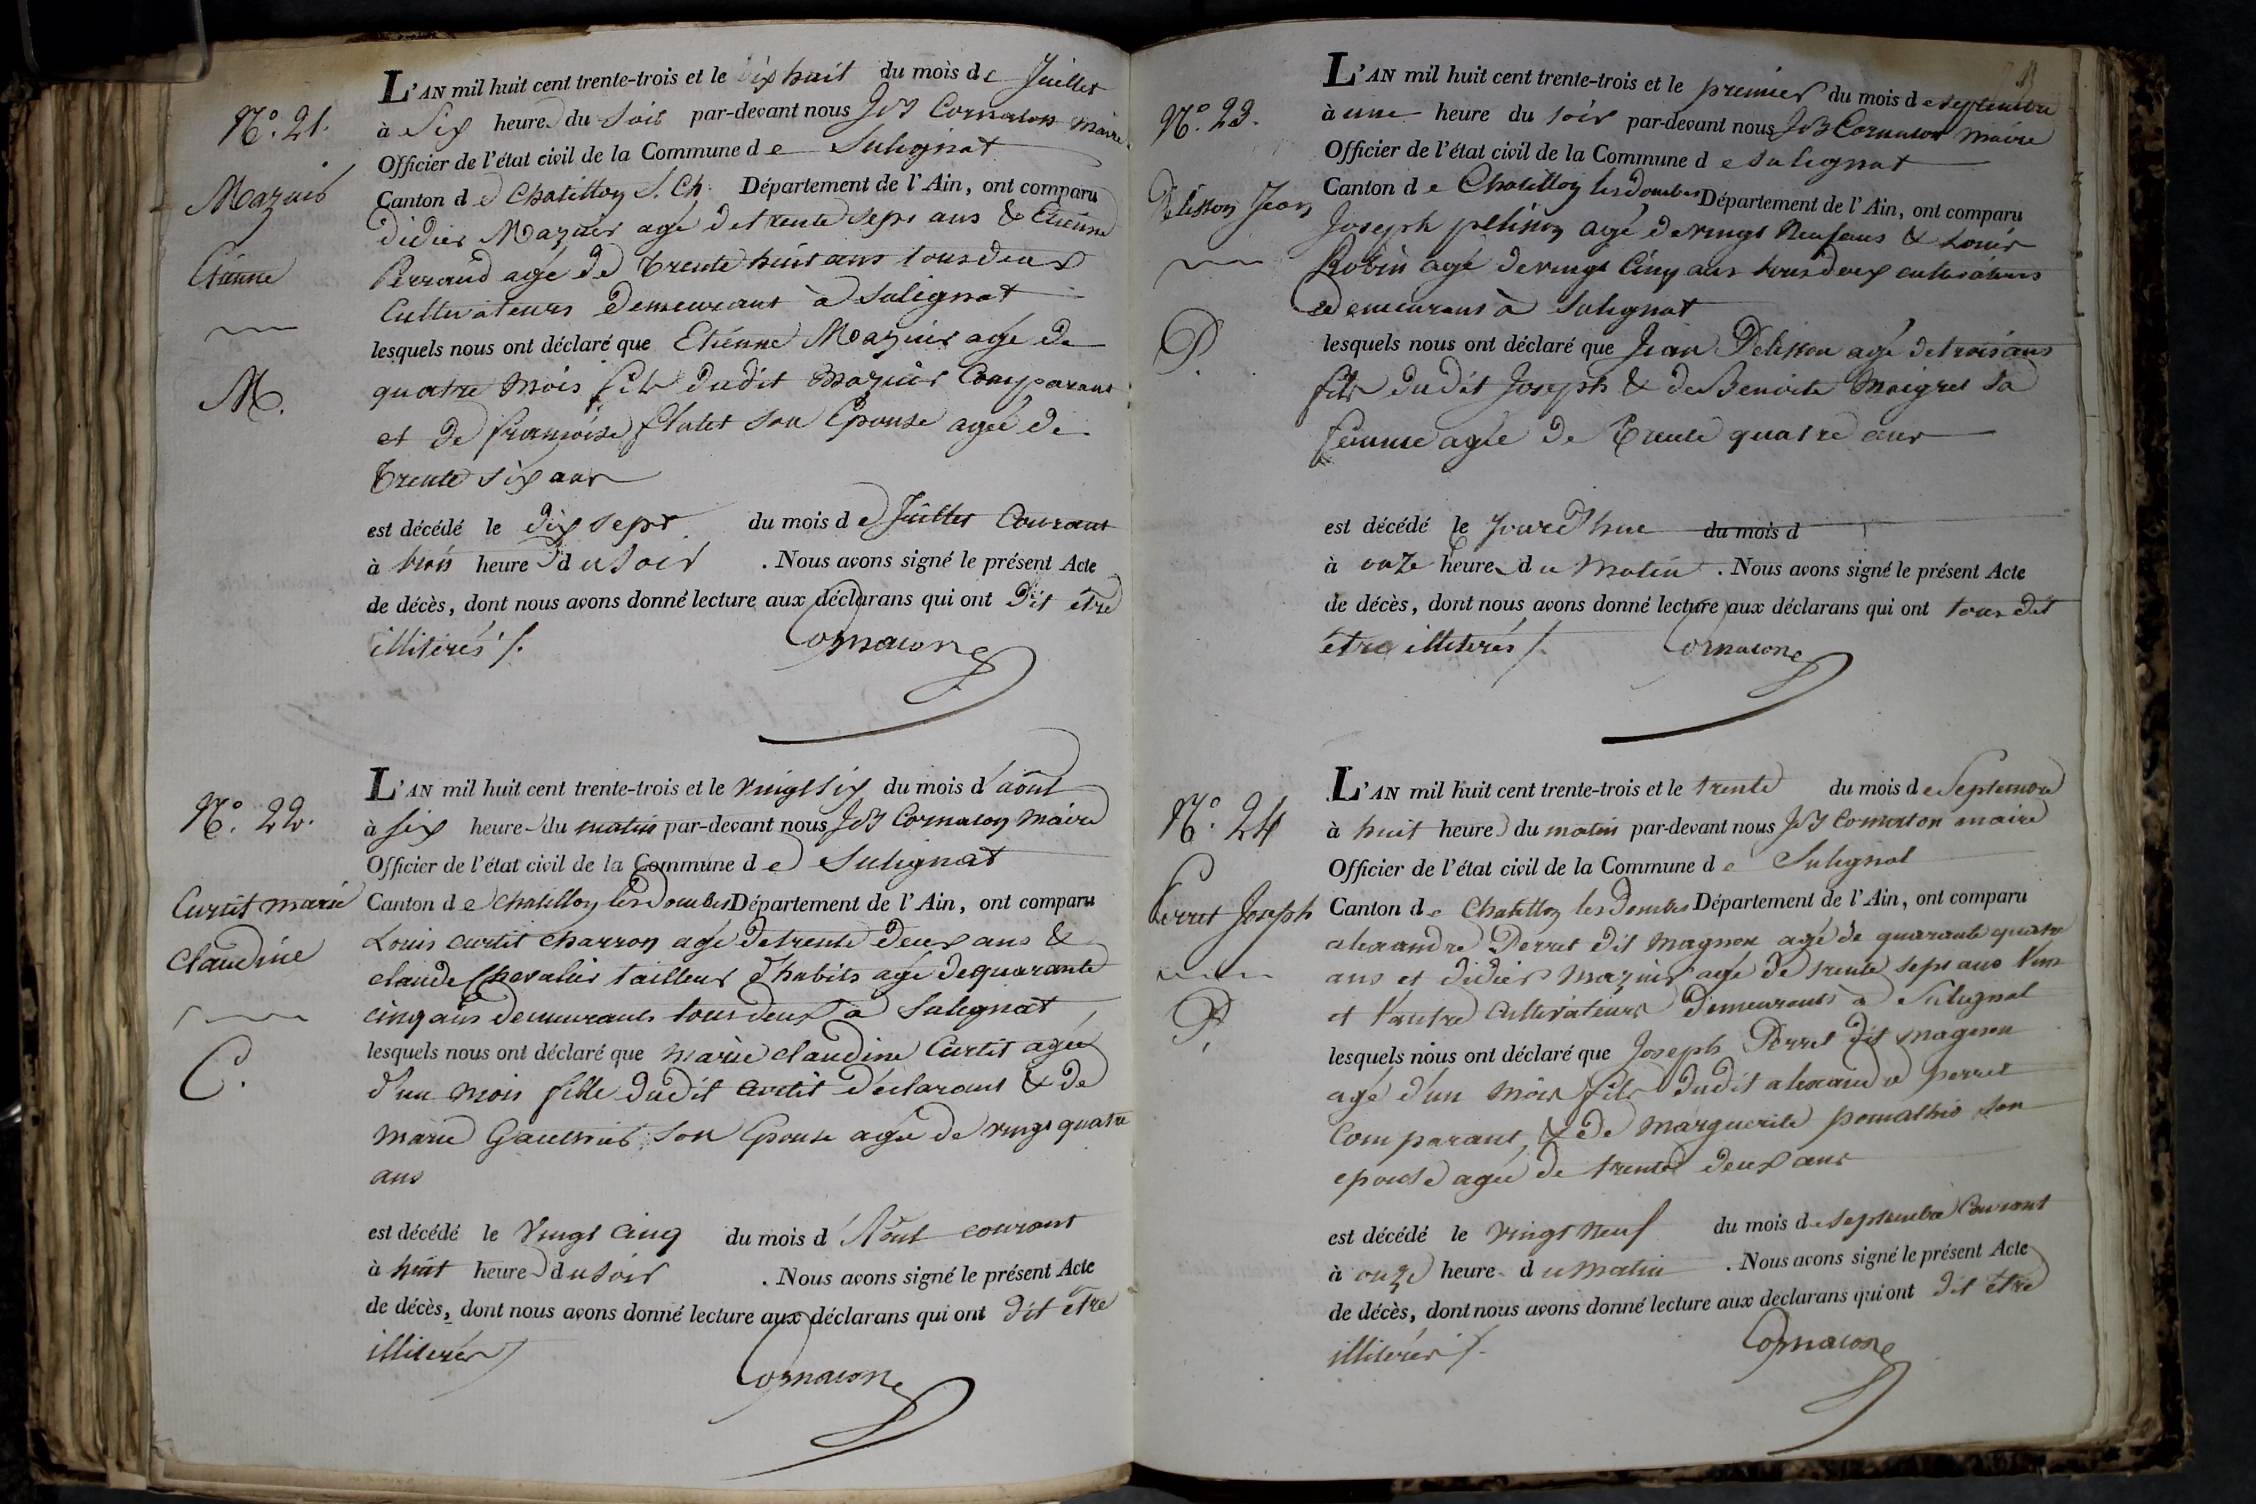 N.º 21.
Mazuir
Etienne
M.
L'AN mil huit cent trente-trois et le dix huit du mois de Juillet
à Six heure du Soir par-devant nous JB Cornaton Maire
Officier de l'état civil de la Commune de Sulignat
Canton de Chatillon S. Ch. Département de l'Ain, ont comparu
Didier Mazuir agé de trente sept ans & Etienne
Perraud agé de trente huit ans tous deux
Cultivateurs Demeurant à Sulignat
lesquels nous ont déclaré que Etienne Mazuir agé de
quatre Mois fils dudit Mazuir Comparant
et de françoise flutet son Epouse agée de
trente six ans
est décédé le dix sept du mois de Juillet Courant
à trois heure du Soir . Nous avons signé le présent Acte
de décès, dont nous avons donné lecture aux déclarans qui ont Dit être
illitérés /.
Cornaton
N.º 22.
Curtit marie
Claudine
C.
L'AN mil huit cent trente-trois et le vingt six du mois d'août
à six heure du matin par-devant nous JB Cornaton Maire
Officier de l'état civil de la Commune de Sulignat
Canton de Chatillon les Dombes Département de l'Ain, ont comparu
Louis Curtit Charron agé de trente deux ans &
claude Chevalier tailleur d'habits agé de quarante
cinq ans demeurants tous deux à Sulignat
lesquels nous ont déclaré que Marie Claudine Curtit agée
d'un mois fille dudit Curtit Déclarant & de
Marie Gauthier son Epouse agée de vingt quatre
ans
est décédé le vingt cinq du mois d'Août courant
à huit heure du soir . Nous avons signé le présent Acte
de décès, dont nous avons donné lecture aux déclarans qui ont dit être
illitérés /
Cornaton
N.º 23.
Pelisson Jean
P.
L'AN mil huit cent trente-trois et le premier du mois de septembre
à une heure du soir par-devant nous JB Cornaton Maire
Officier de l'état civil de la Commune de Sulignat
Canton de Chatillon les Dombes Département de l'Ain, ont comparu
Joseph pelisson agé de vingt Neuf ans & Louis
Robin agé de vingt Cinq ans tous deux cultivateurs
demeurans à Sulignat
lesquels nous ont déclaré que Jean Pelisson agé de trois ans
fils dudit Joseph & de Benoite Maigret sa
femme agée de trente quatre ans
est décédé le jourd'hui du mois d
à onze heure du Matin . Nous avons signé le présent Acte
de décès, dont nous avons donné lecture aux déclarans qui ont tous dit
être illitérés /.
Cornaton
N.º 24
Perret Joseph
P.
L'AN mil huit cent trente-trois et le trente du mois de Septembre
à huit heure du matin par-devant nous JB Cornaton maire
Officier de l'état civil de la Commune de Sulignat
Canton de Chatillon les Dombes Département de l'Ain, ont comparu
alexandre Perret dit Magnon agé de quarante quatre
ans et didier Mazuir agé de trente sept ans l'un
et l'autre Cultivateurs Demeurants à Sulignat
lesquels nous ont déclaré que Joseph Perret dit magnon
agé d'un mois fils dudit alexandre perret
Comparant, & de Marguerite son
epouse agée de trente deux ans
est décédé le vingt neuf du mois de septembre Courant
à onze heure du Matin . Nous avons signé le présent Acte
de décès, dont nous avons donné lecture aux declarans qui ont dit être
illitérés /.
Cornaton